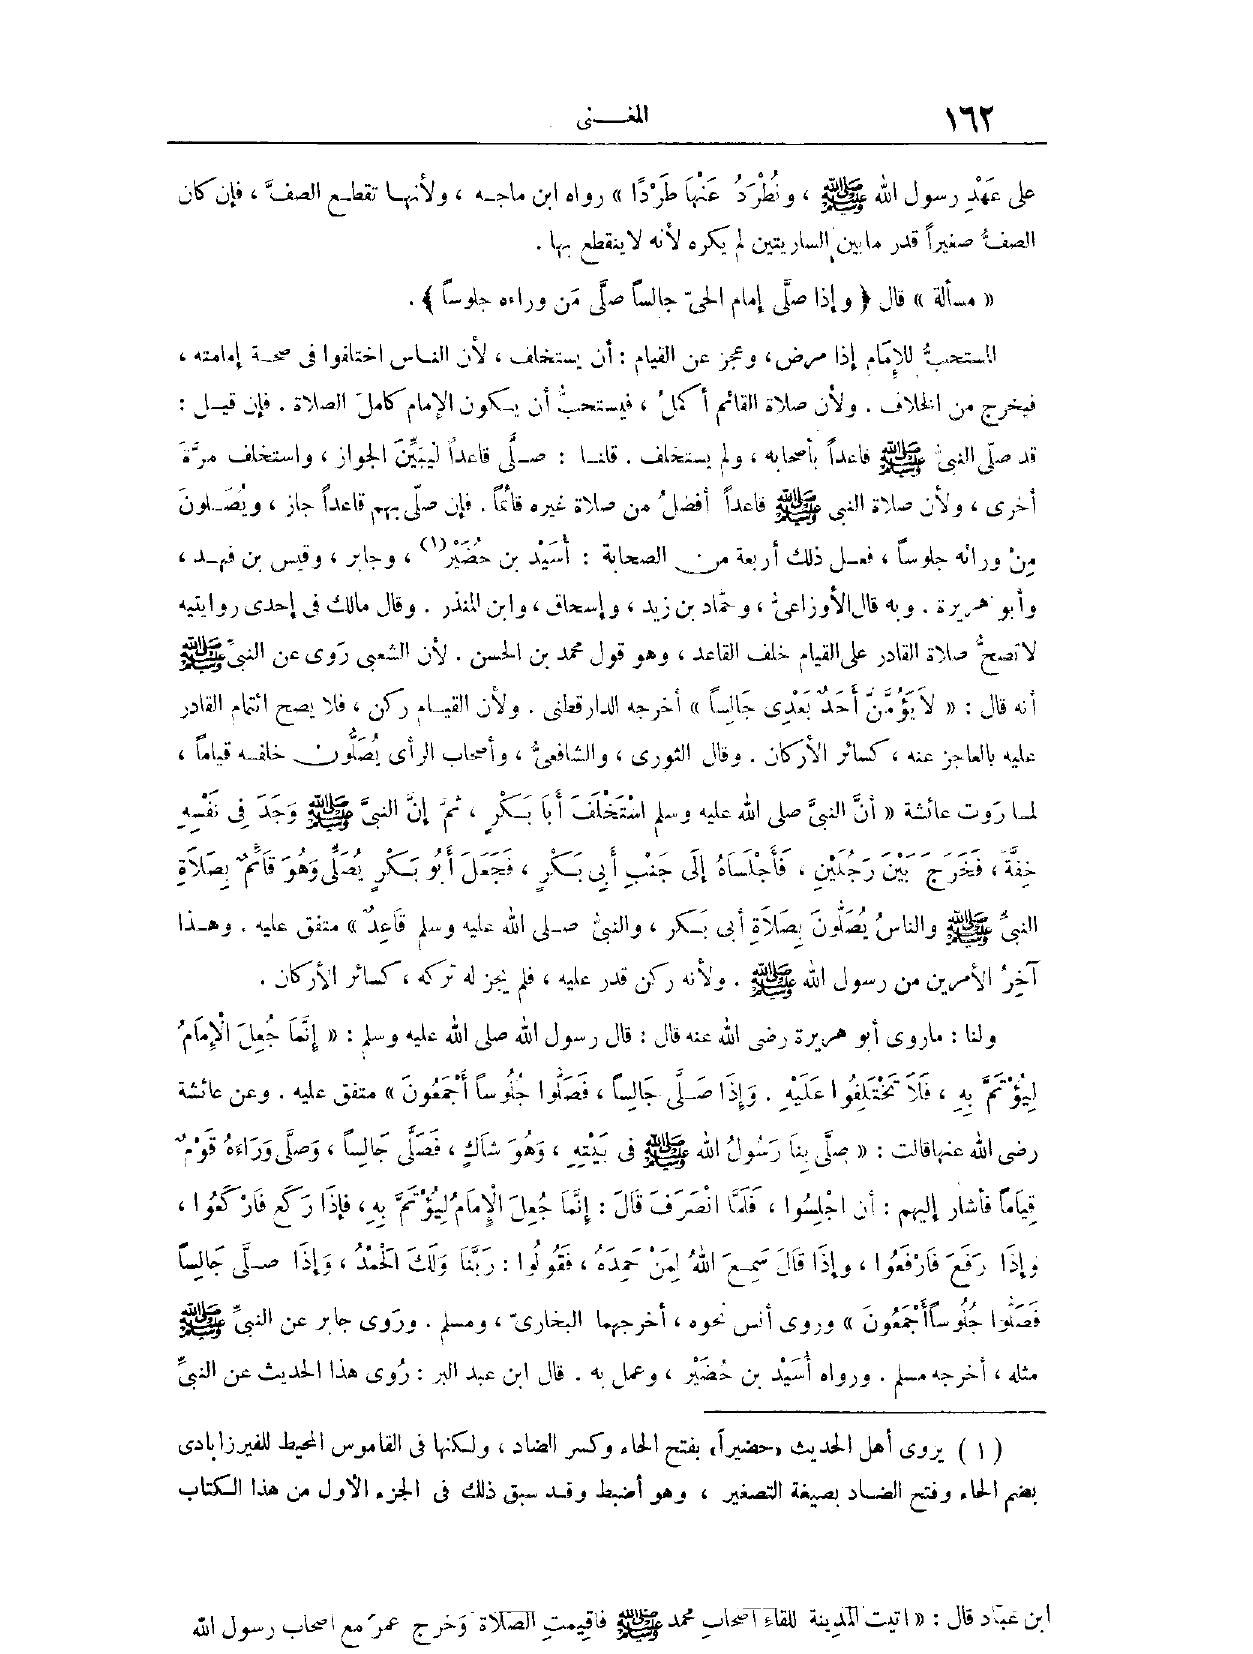 ١٦٢ المغـــنى
على عَهْدِ رسول الله ﷺ ، ونُطْرَدُ عَنْهَا طَرْدًا » رواه ابن ماجـه ، ولأنهـا تقطـع الصفَّ ، فإن كان
الصفُّ صغيراً قدر مابين الساريتين لم يكره لأنه لاينقطع بها .
« مسألة » قال ﴿ وإذا صلَّى إمام الحىّ جالساً صلَّى مَن وراءه جلوساً ﴾ .
المستحبُّ للإمَام إذا مرض، وعجز عن القيام : أن يستخلف ، لأن النـاس اختلفوا فى صحـة إمامته ،
فيخرج من الخلاف . ولأن صلاة القائم أكملُ ، فيستحبُّ أن يـكون الإمام كاملَ الصلاة . فإن قيـل :
قد صلّى النبىُّ ﷺ قاعداً بأصحابه ، ولم يستخلف . قلنـا : صـلَّى قاعداً ليُبَيِّنَ الجواز ، واستخلف مرَّةً
أخرى ، ولأن صلاة النبى ﷺ قاعداً أفضلُ من صلاة غيره قائماً . فإن صلّى بهم قاعداً جاز ، ويُصَـلونَ
مِنْ ورائه جلوساً ، فعـل ذلك أربعة من الصحابة : أُسَيْد بن حُضَيْر(١) ، وجابر ، وقيس بن قهـد ،
وأبو هريرة . وبه قال الأوزاعىُّ ، وحمَّاد بن زيد ، وإسحاق ، وابن المنذر . وقال مالك فى إحدى روايتيه
لاتصحُّ صلاة القادر على القيام خلف القاعد ، وهو قول محمد بن الحسن . لأن الشعبى رَوى عن النبىّ ﷺ
أنه قال : « لاَ يَؤُمَّنَّ أَحَدٌ بَعْدِى جَالِساً » أخرجه الدارقطنى . ولأن القيـام ركن ، فلا يصح ائتمام القادر
عليه بالعاجز عنه ، كسائر الأركان . وقال الثورى ، والشافعىُّ ، وأصحاب الرأى يُصَلُّون خلفـه قياماً ،
لمـا رَوت عائشة « أنَّ النبىَّ صلى الله عليه وسلم اسْتَخْلَفَ أَبَا بَـكْرٍ ، ثمَّ إنَّ النبىَّ ﷺ وَجَدَ فِى نَفْسِهِ
خِفَّةً ، فَخَرَجَ بَيْنَ رَجُلَيْنِ ، فَأَجْلَسَاهُ إلَى جَنْبِ أبِى بَـكْرٍ ، فَجَعَلَ أَبُو بَـكْرٍ يُصَلِّى وَهُوَ قَائِمٌ بِصَلاَةِ
النبىِّ ﷺ والناسُ يُصَلُّونَ بِصَلاَةِ أبى بَـكر ، والنبىُّ صـلى الله عليه وسلم قَاعِدٌ » متفق عليه . وهـذا
آخِرُ الأمرين من رسول الله ﷺ . ولأنه ركن قدر عليه ، فلم يجز له تركه ، كسائر الأركان .
ولنا : ماروى أبو هريرة رضى الله عنه قال : قال رسول الله صلى الله عليه وسلم : « إنَّمَا جُعِلَ الْإِمَامُ
لِيُؤْتَمَّ بِهِ ، فَلاَ تَخْتَلِفُوا عَلَيْهِ . وَإِذَا صَـلَّى جَالِساً ، فَصَلُّوا جُلُوساً أَجْمَعُونَ » متفق عليه . وعن عائشة
رضى الله عنها قالت : « صلَّى بِنَا رَسُولُ الله ﷺ فى بَيْتِهِ ، وَهُوَ شَاكٍ ، فَصَلَّى جَالِساً ، وَصَلَّى وَرَاءَهُ قَوْمٌ
قِيَاماً فأشار إليهم : أن اجْلِسُوا ، فَلَمَّا انْصَرَفَ قَالَ : إنَّمَا جُعِلَ الْإِمَامُ لِيُؤْتَمَّ بِهِ ، فإذَا رَكَع فَارْكَعُوا ،
وإِذَا رَفَعَ فَارْفَعُوا ، وإذَا قَالَ سَمِـعَ اللهُ لِمَنْ حَمِدَهُ ، فَقُولُوا : رَبَّنَا وَلَكَ الْحَمْدُ ، وَإِذَا صـلَّى جَالِساً
فَصَلُّوا جُلُوساً أَجْمَعُونَ » وروى أنس نحوه ، أخرجهما البخارىّ ، ومسلم . ورَوى جابر عن النبىِّ ﷺ
مثله ، أخرجه مسلم . ورواه أُسَيْد بن حُضَيْر ، وعمل به . قال ابن عبد البر : رُوى هذا الحديث عن النبىِّ
(١) يروى أهل الحديث «حضيراً» بفتح الحاء وكسر الضاد ، ولكنها فى القاموس المحيط للفيرزابادى
بضم الحاء وفتح الضـاد بصيغة التصغير ، وهو أضبط وقـد سبق ذلك فى الجزء الأول من هذا الكتاب
ابن عبّاد قال : « اتيت المدينة للقاء اصحاب محمد ﷺ فاقيمت الصلاة وخرج عمر مع اصحاب رسول الله